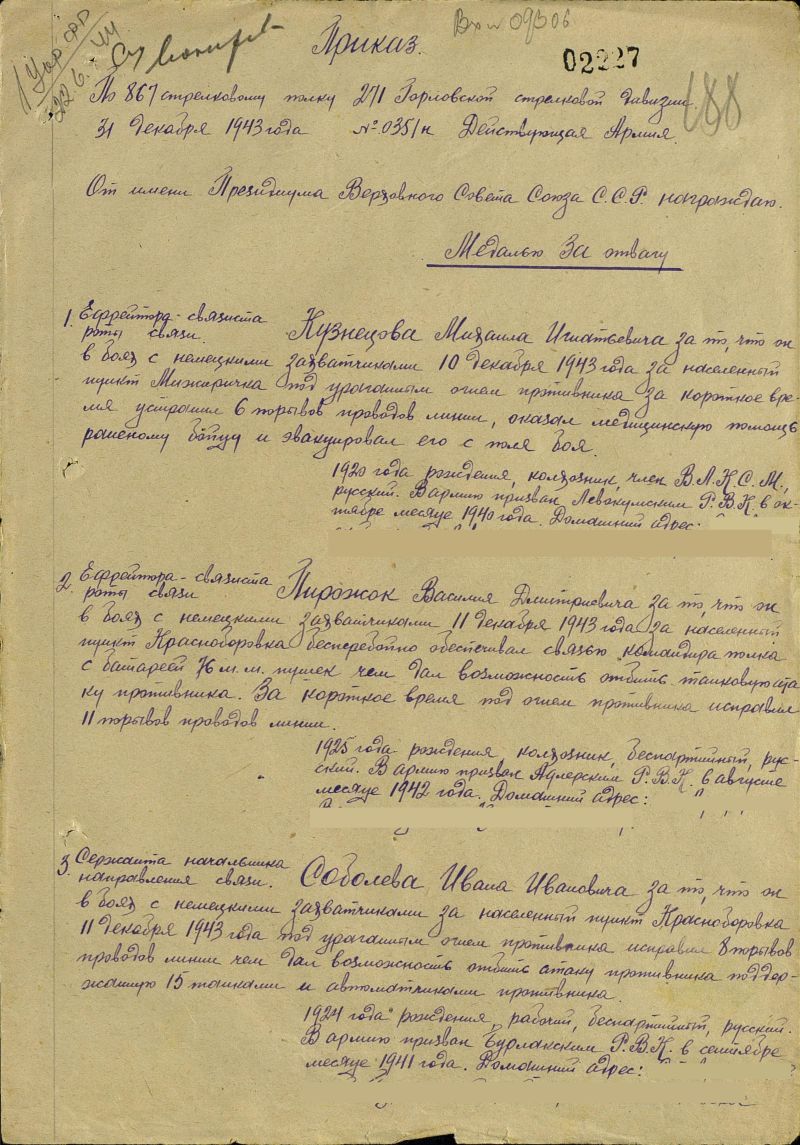 Вх. № 09306
Приказ.
02227
188
По 867 стрелковому полку 271 Горловской стрелковой дивизии.
31 декабря 1943 года № 035/н Действующая Армия.
От имени Президиума Верховного Совета Союза С.С.Р. награждаю.
Медалью За отвагу
1. Ефрейтора-связиста
роты связи. Кузнецова Михаила Игнатьевича за то, что он
в боях с немецкими захватчиками 10 декабря 1943 года за населенный
пункт Мижиричка под ураганным огнем противника за короткое вре-
мя устранил 6 порывов проводов линии, оказал медицинскую помощь
раненому бойцу и эвакуировал его с поля боя.
1920 года рождения, колхозник, член В.Л.К.С.М.,
русский. В армию призван Левокумским Р.В.К. в ок-
тябре месяце 1940 года. Домашний адрес:
2. Ефрейтора-связиста
роты связи Пирожок Василия Дмитриевича за то, что он
в боях с немецкими захватчиками 11 декабря 1943 года за населенный
пункт Красноборовка бесперебойно обеспечивал связью командира полка
с батареей 76 м.м. пушек чем дал возможность отбить танковую ата
ку противника. За короткое время под огнем противника исправил
11 порывов проводов линии.
1925 года рождения, колхозник, беспартийный, рус-
ский. В армию призван Адлерским Р.В.К. в августе
месяце 1942 года. Домашний адрес:
3. Сержанта начальника
направления связи. Соболева Ивана Ивановича за то, что он
в боях с немецкими захватчиками за населенный пункт Красноборовка
11 декабря 1943 года под ураганным огнем противника исправил 8 порывов
проводов линии чем дал возможность отбить атаку противника поддер-
жанную 15 танками и автоматчиками противника.
1924 года рождения, рабочий, беспартийный, русский.
В армию призван Бурлакским Р.В.К. в сентябре
месяце 1941 года. Домашний адрес: